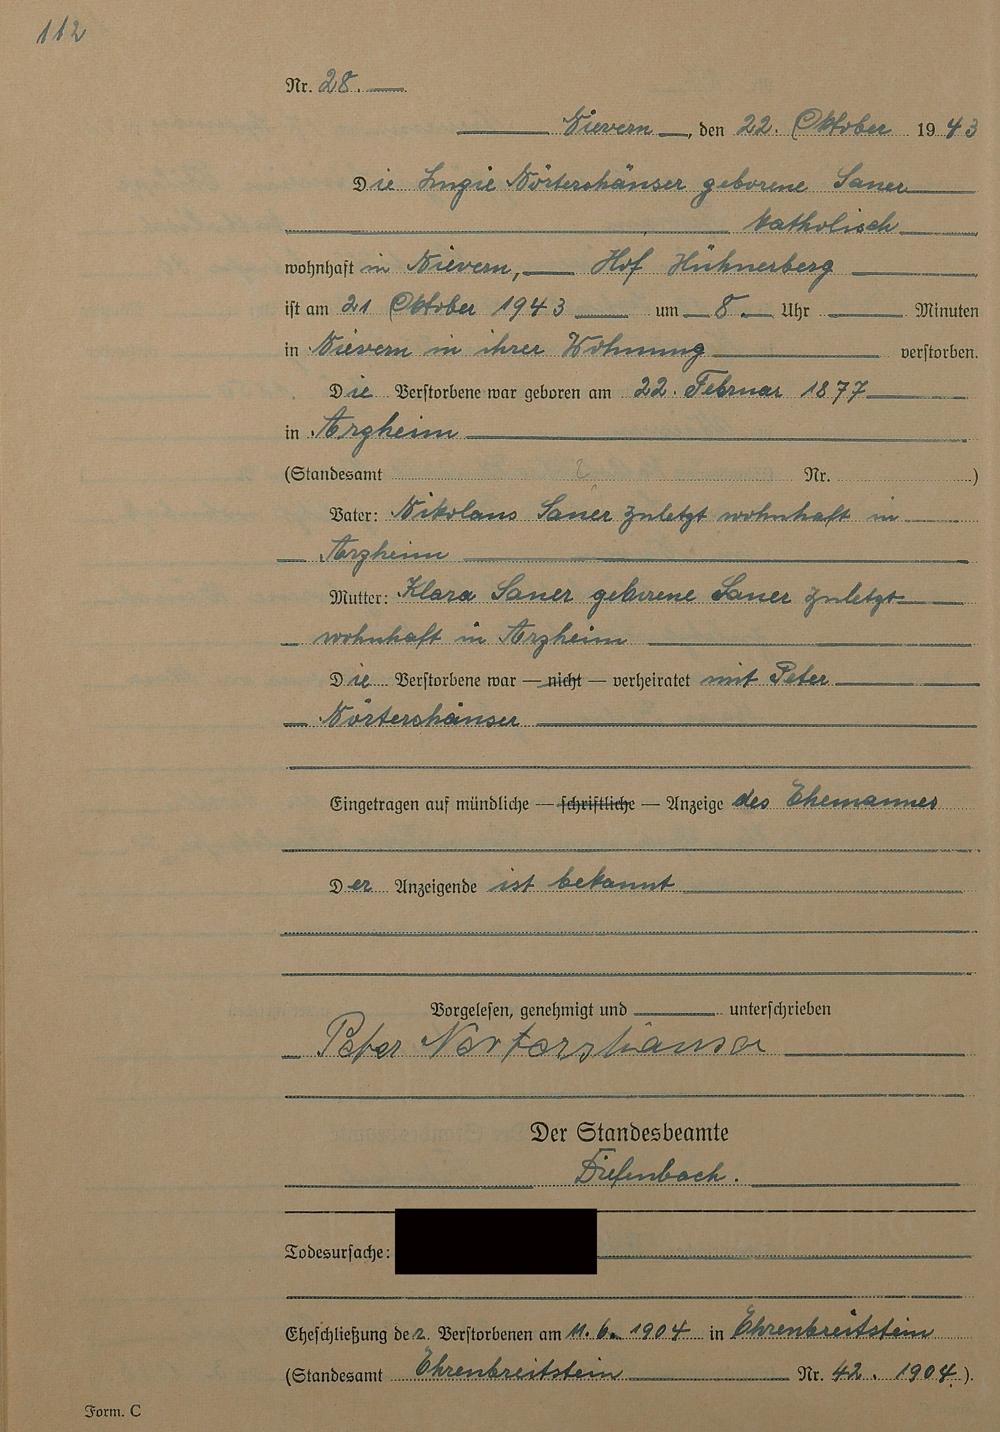 112
Nr. 28.
Nievern, den 22. Oktober 1943
Die Luzie Nörtershäuser geborene Sauer
katholisch
wohnhaft in Nievern, Hof Hühnerberg
ist am 21 Oktober 1943 um 8. Uhr Minuten
in Nievern in ihrer Wohnung verstorben.
Die Verstorbene war geboren am 22. Februar 1877
in Arzheim
(Standesamt Nr. )
Vater: Nikolaus Sauer zuletzt wohnhaft in
Arzheim
Mutter: Klara Sauer geborene Sauer zuletzt
wohnhaft in Arzheim
Die Verstorbene war — nicht — verheiratet mit Peter
Nörtershäuser
Eingetragen auf mündliche — schriftliche — Anzeige des Ehemannes
Der Anzeigende ist bekannt
Vorgelesen, genehmigt und unterschrieben
Peter Nörtershäuser
Der Standesbeamte
Diefenbach.
Todesursache:
Eheschließung der Verstorbenen am 11. 6. 1904 in Ehrenbreitstein
(Standesamt Ehrenbreitstein Nr. 42. 1904.).
Form. C